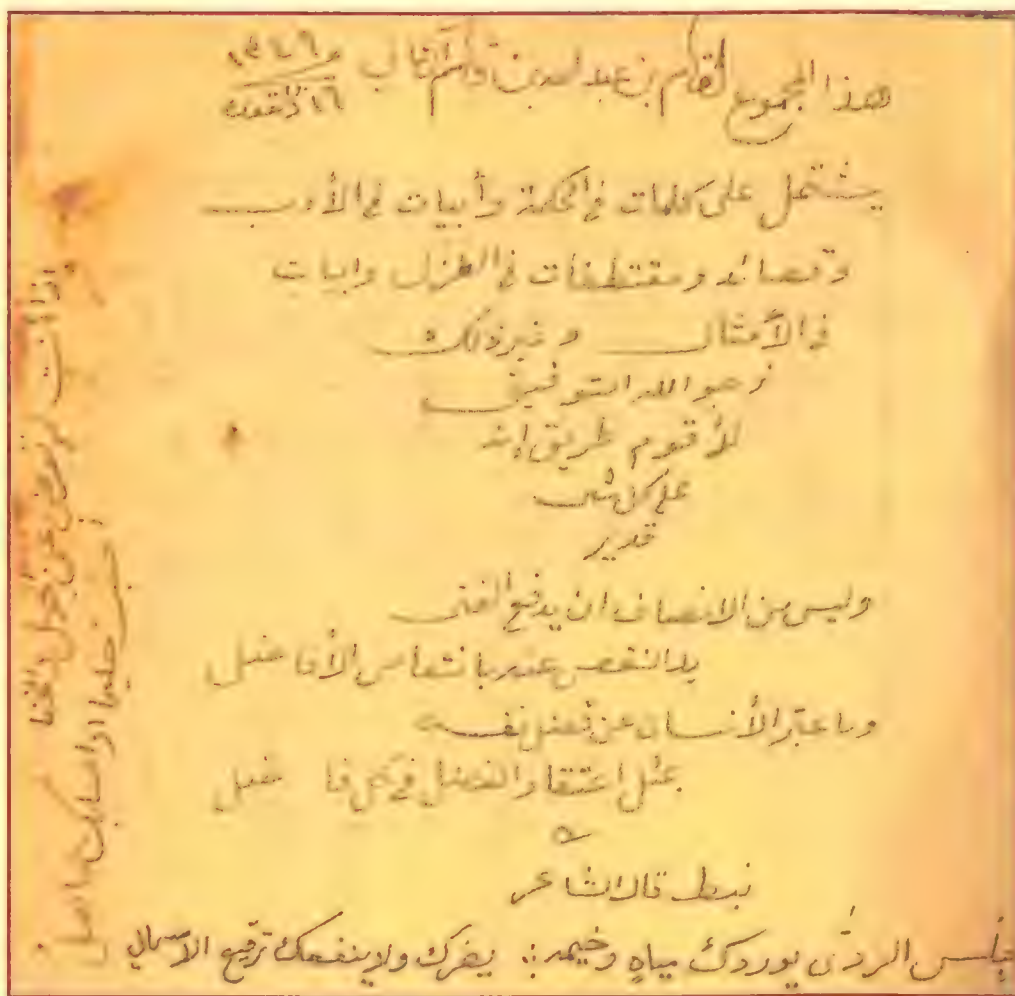 هذا المجموع لقاسم بن عبد الله بن قاسم آل ثاني
١٦ القعده
يشتمل على كلمات في الحكمة وأبيات في الأدب
وقصائد ومقتطفات في الغزل وابيات
في الأمثال وغير ذلك
نرجوا الله التوفيق
لأقوم طريق انه
على كل شيء
قدير
وليس من الانصاف ان يدفع الفتى
يد النقص عنه بانتقاص الأفاضل
وما عبّر الأنسان عن فضل نفسه
بمثل اعتقاد الفضل في كل فاضل
نبط قال الشاعر
جليس الردى يوردك مياه وخيمه يضرك ولا ينفعك ترقيع الاسمال
إذا أنت لم تعرض عن الجهل والخنا
أصبت حليما او اصابك جاهل